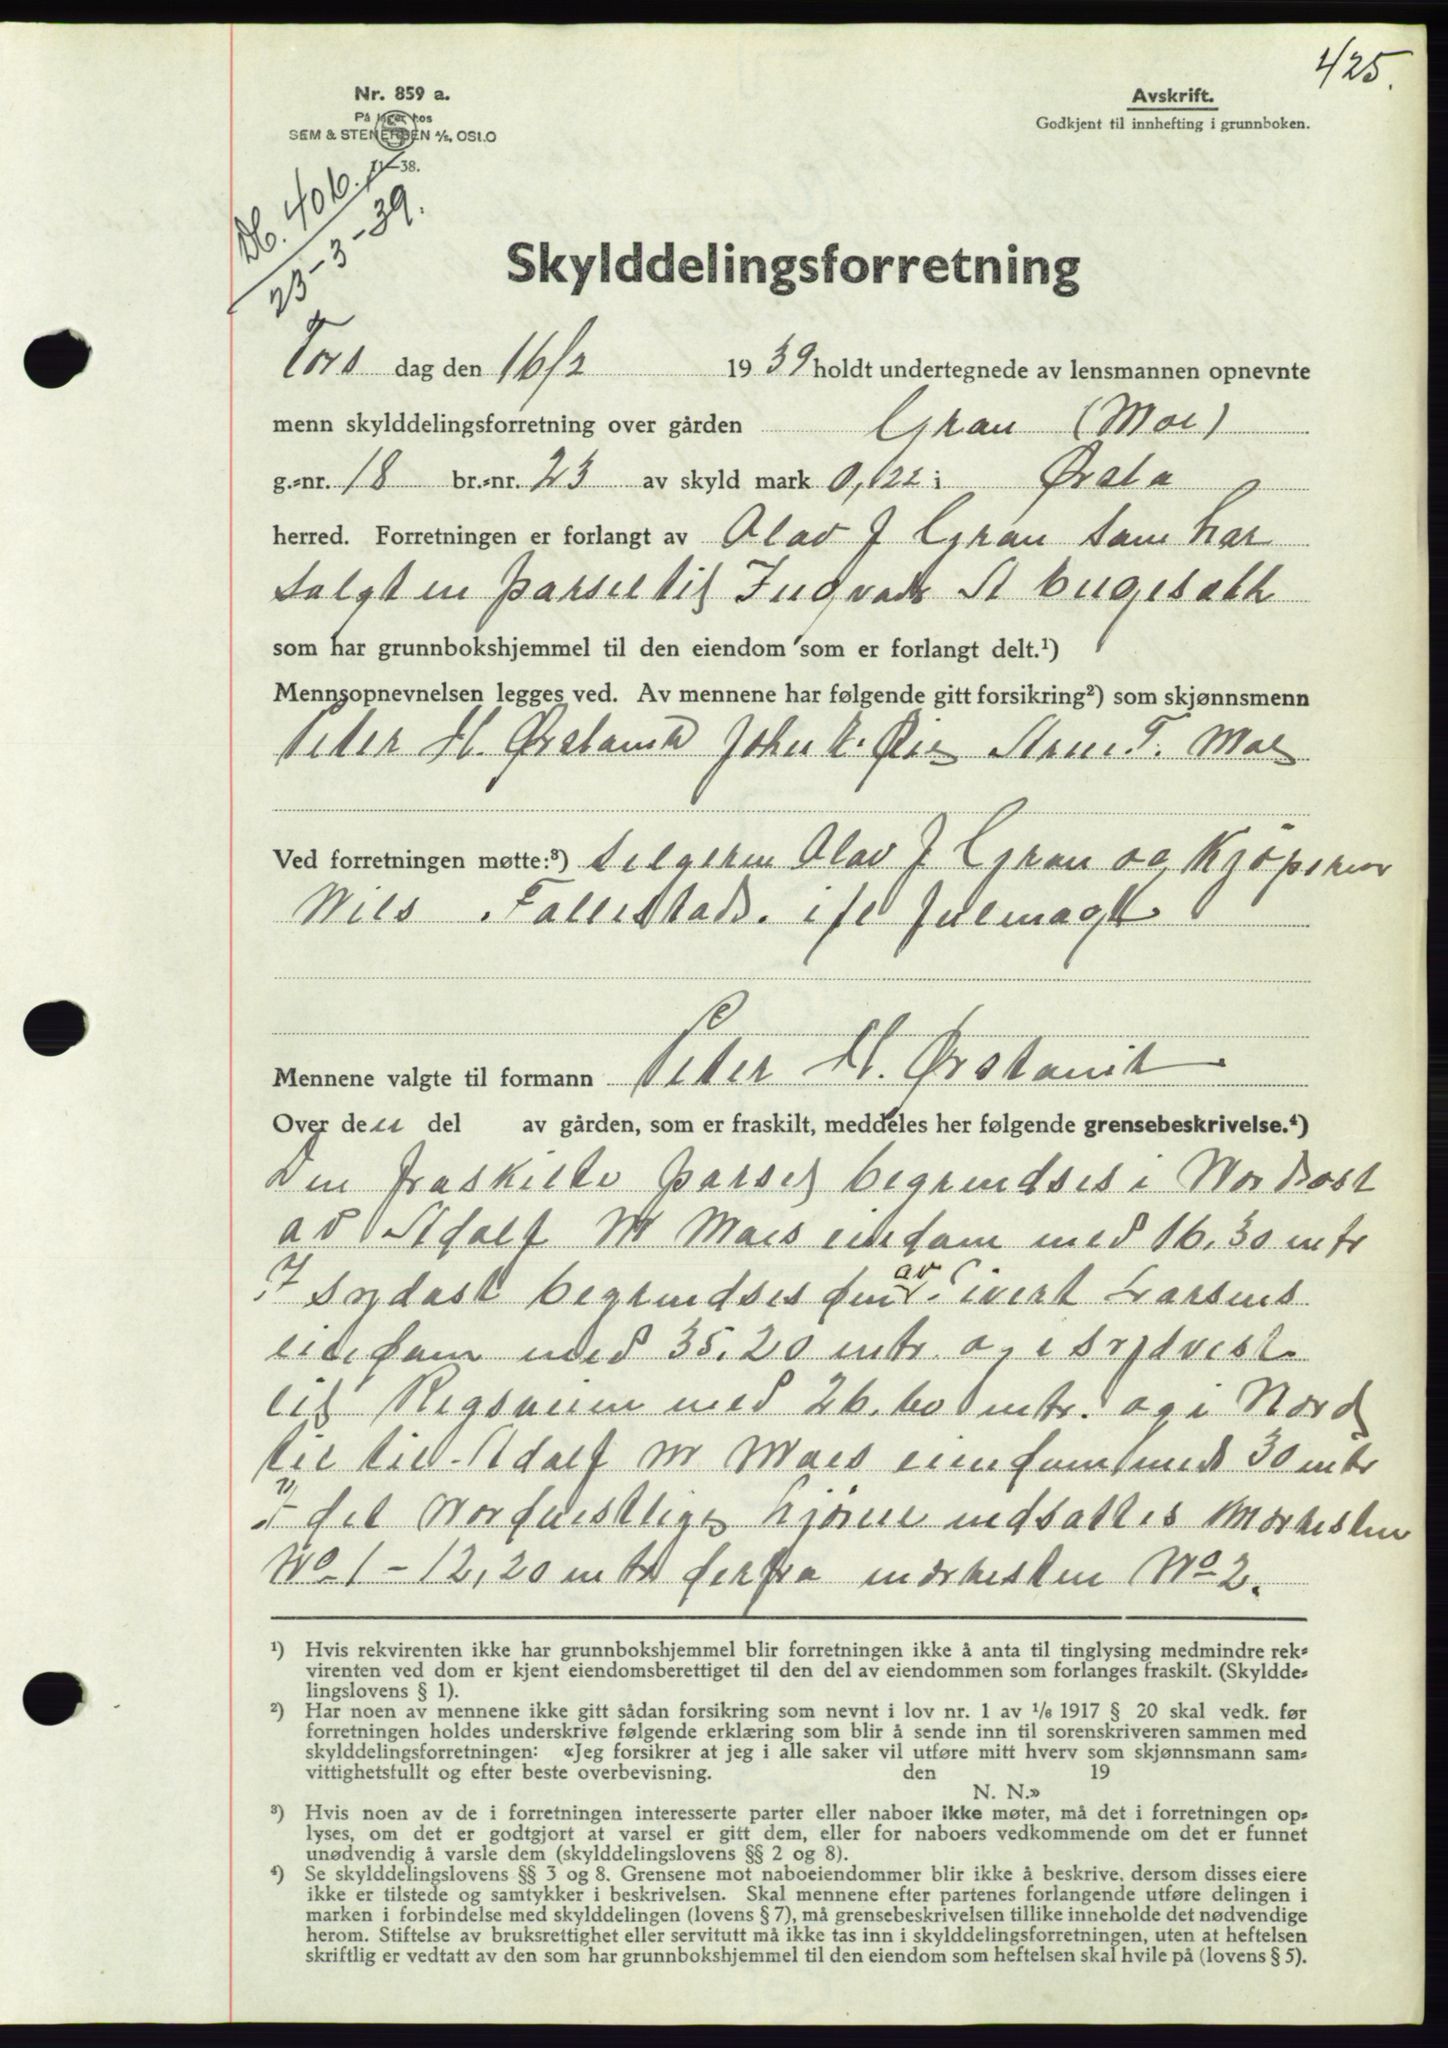 425.
Nr. 859 a.
På lager hos
SEM & STENERSEN A/S, OSLO
11-38.
Avskrift.
Godkjent til innhefting i grunnboken.
Db. 406.
23-3-39.
Skylddelingsforretning
Tors dag den 16/2 1939 holdt undertegnede av lensmannen opnevnte
menn skylddelingsforretning over gården Gran (Moe)
g.-nr. 18 br.-nr. 23 av skyld mark 0,22 i Ørsta
herred. Forretningen er forlangt av Olav J Gran som har
solgt en parsel til Ingvald A
som har grunnbokshjemmel til den eiendom som er forlangt delt.¹)
Mennsopnevnelsen legges ved. Av mennene har følgende gitt forsikring²) som skjønnsmenn
Peter H. Ørstavik John E. Øie Arne T. Moe
Ved forretningen møtte:³) selgeren Olav J Gran og Kjøperen
Nils Fallestads. if. fulmagt
Mennene valgte til formann Peter H. Ørstavik
Over den del av gården, som er fraskilt, meddeles her følgende grensebeskrivelse.⁴)
Den fraskilte parsel begrendses i Nordost
av Adolf M Moes eindom med 16.30 mtr
I sydost begrendses den av Sivert Larsens
eindom med 35.20 mtr. og i sydvest
til Rigsveien med 26.60 mtr. og i Nord
til til Adolf M Moes eiendom med 30 mtr
I det Nordvestlige hjørne nedsattes Merkesten
No 1 - 12,20 mtr derfra merkesten No 2.
¹) Hvis rekvirenten ikke har grunnbokshjemmel blir forretningen ikke å anta til tinglysing medmindre rek-
virenten ved dom er kjent eiendomsberettiget til den del av eiendommen som forlanges fraskilt. (Skyldde-
lingslovens § 1).
²) Har noen av mennene ikke gitt sådan forsikring som nevnt i lov nr. 1 av 1/6 1917 § 20 skal vedk. før
forretningen holdes underskrive følgende erklæring som blir å sende inn til sorenskriveren sammen med
skylddelingsforretningen: «Jeg forsikrer at jeg i alle saker vil utføre mitt hverv som skjønnsmann sam-
vittighetsfullt og efter beste overbevisning. den 19
N. N.»
³) Hvis noen av de i forretningen interesserte parter eller naboer ikke møter, må det i forretningen op-
lyses, om det er godtgjort at varsel er gitt dem, eller for naboers vedkommende om det er funnet
unødvendig å varsle dem (skylddelingslovens §§ 2 og 8).
⁴) Se skylddelingslovens §§ 3 og 8. Grensene mot naboeiendommer blir ikke å beskrive, dersom disses eiere
ikke er tilstede og samtykker i beskrivelsen. Skal mennene efter partenes forlangende utføre delingen i
marken i forbindelse med skylddelingen (lovens § 7), må grensebeskrivelsen tillike inneholde det nødvendige
herom. Stiftelse av bruksrettighet eller servitutt må ikke tas inn i skylddelingsforretningen, uten at heftelsen
skriftlig er vedtatt av den som har grunnbokshjemmel til den eiendom som heftelsen skal hvile på (lovens § 5).